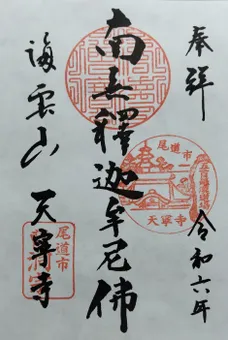 奉拝
令和六年
南無釋迦牟尼佛
海雲山
天寧寺
尾道市
天寧寺
尾道市